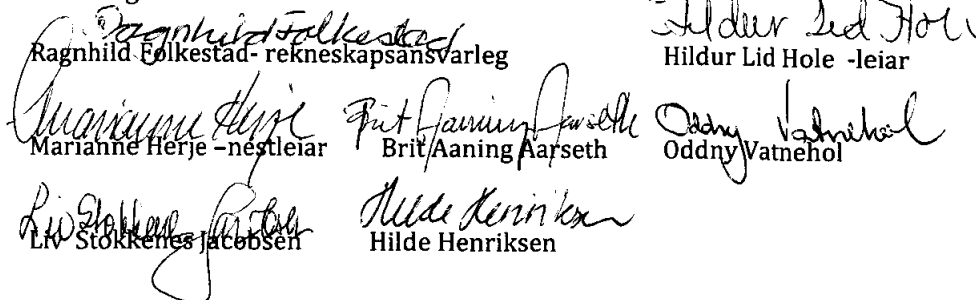 Ragnhild Folkestad Hildur Lid Hole
Ragnhild Folkestad- rekneskapsansvarleg Hildur Lid Hole -leiar
Marianne Herje Brit Aaning Aarseth Oddny Vatnehol
Marianne Herje –nestleiar Brit Aaning Aarseth Oddny Vatnehol
Liv Stokkenes Jacobsen Hilde Henriksen
Liv Stokkenes Jacobsen Hilde Henriksen